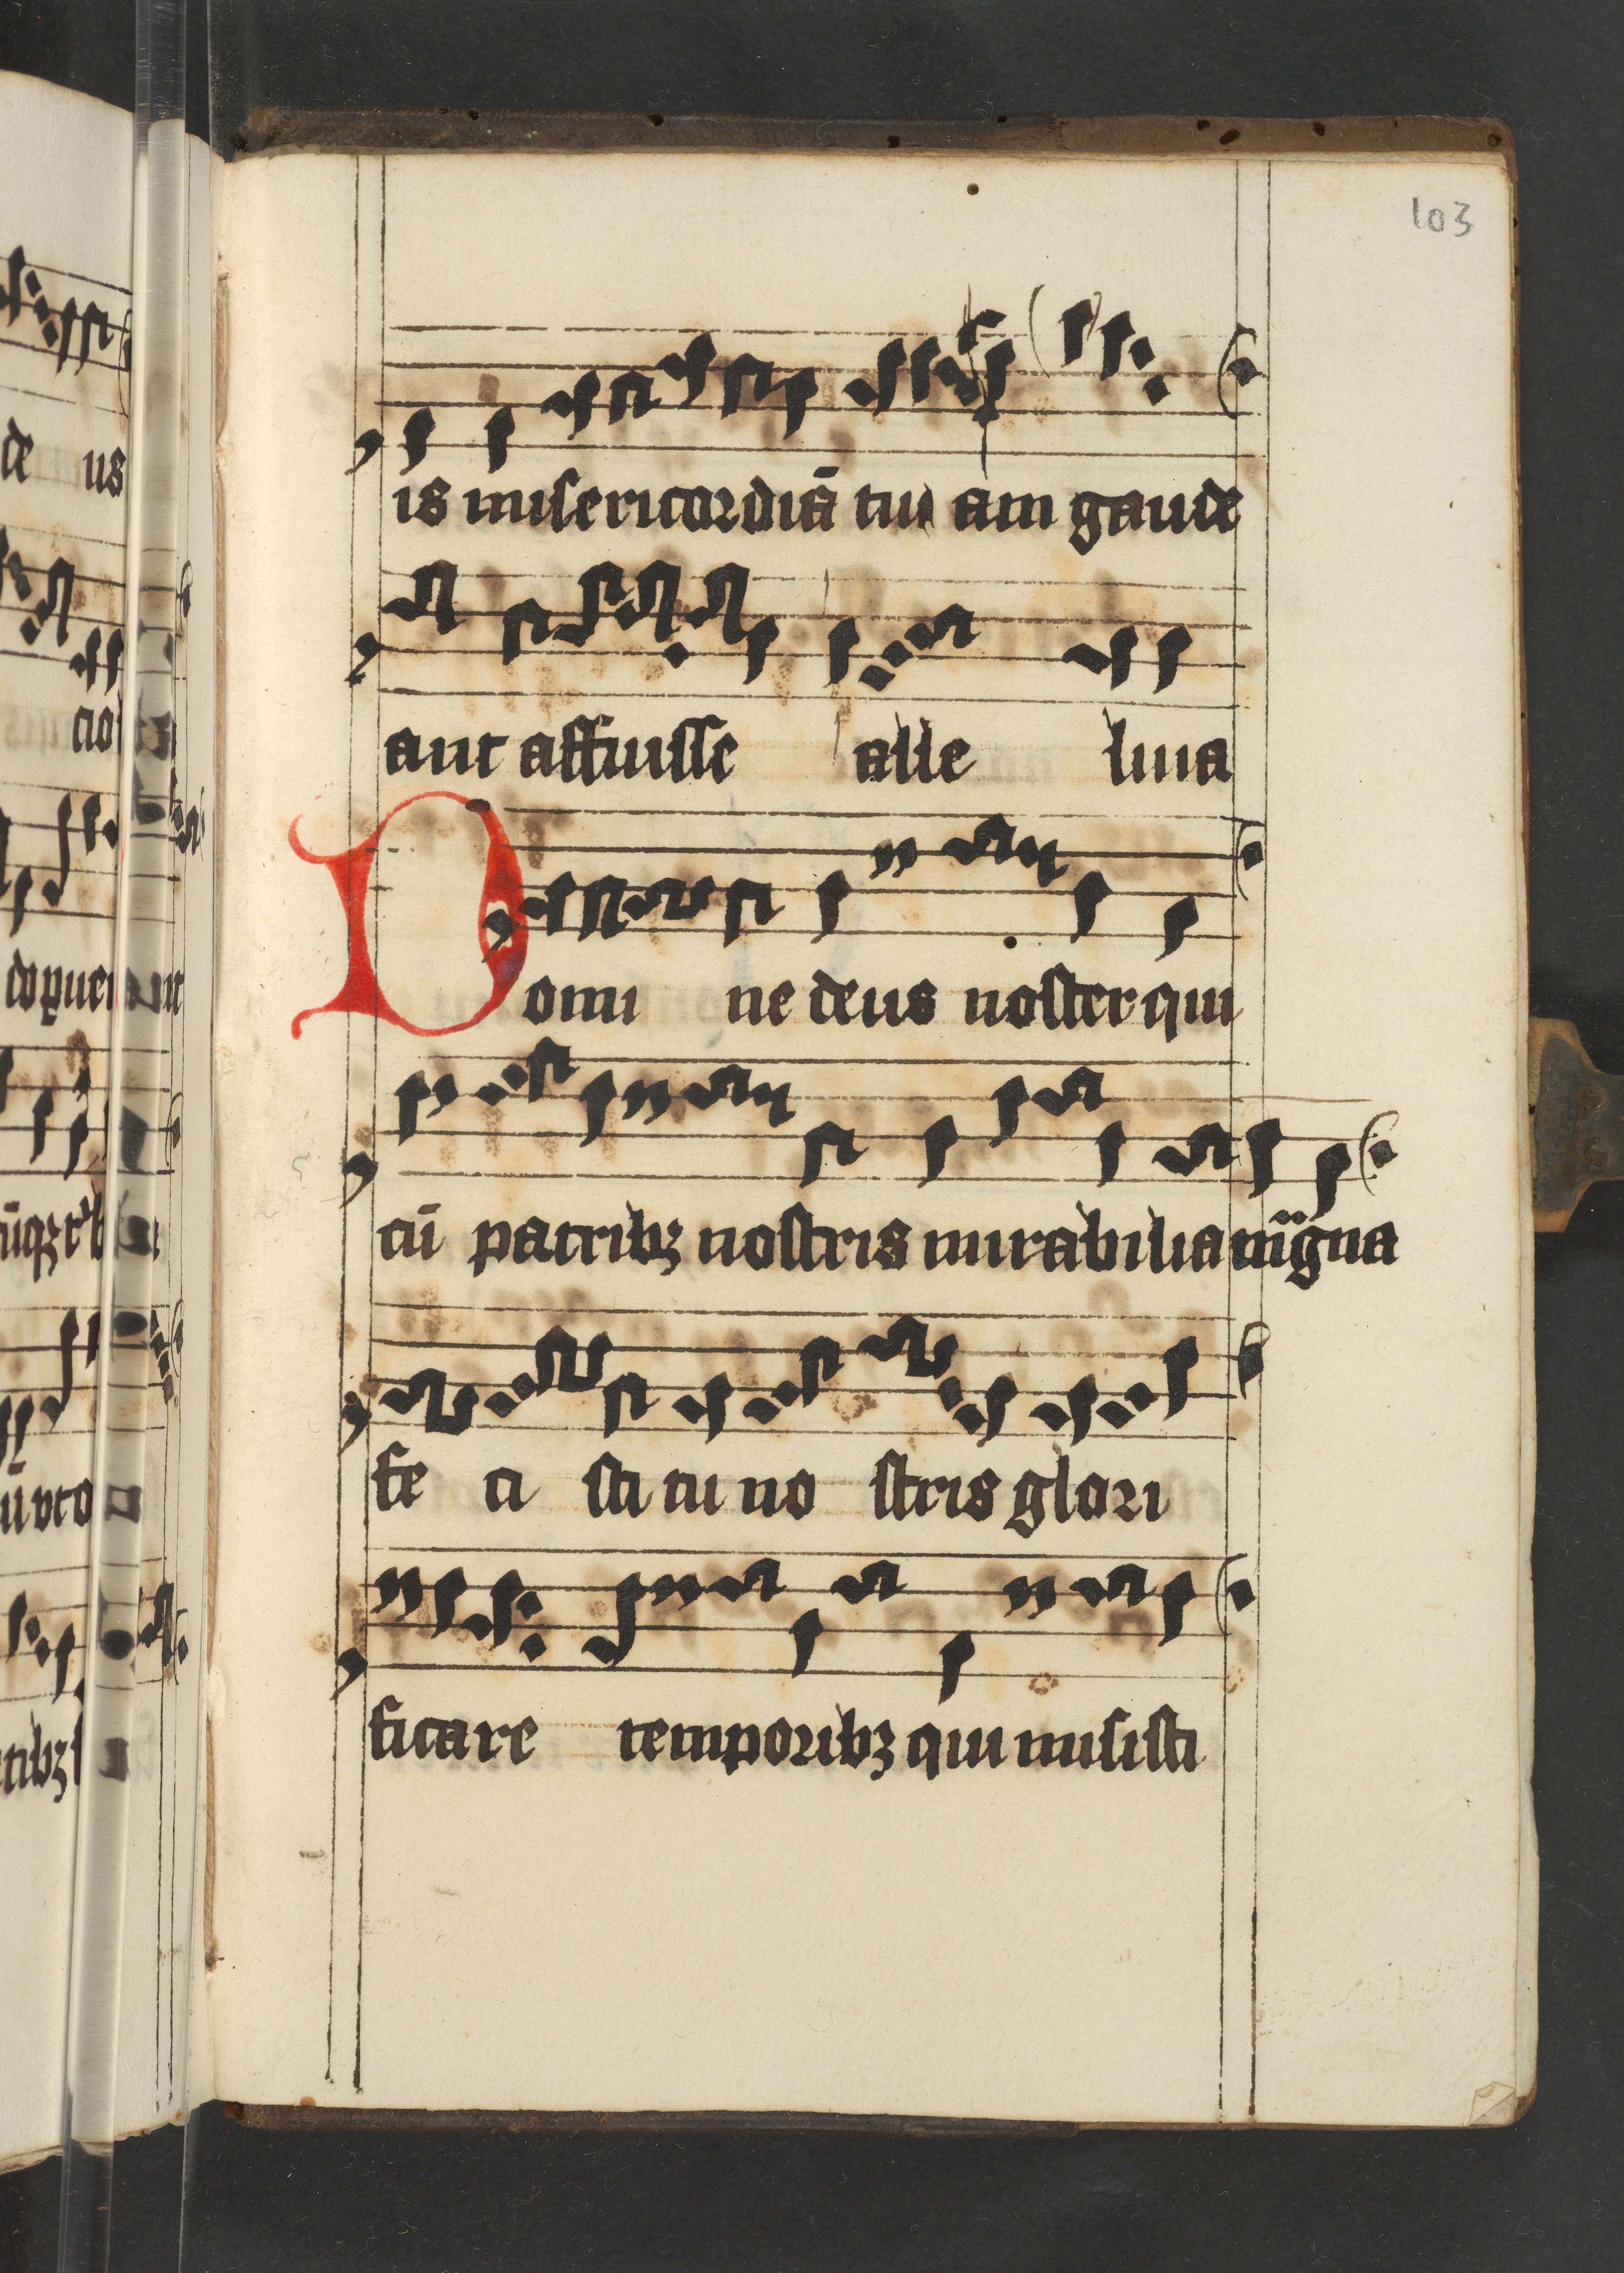 103
is misericordiā tu am gaude
ant affuisse alle luia
Domi ne deus noster qui
cū patribꝫ nostris mirabilia magna
fe ci sti tu no stris glori
ficare temporibꝫ qui misisti
de us